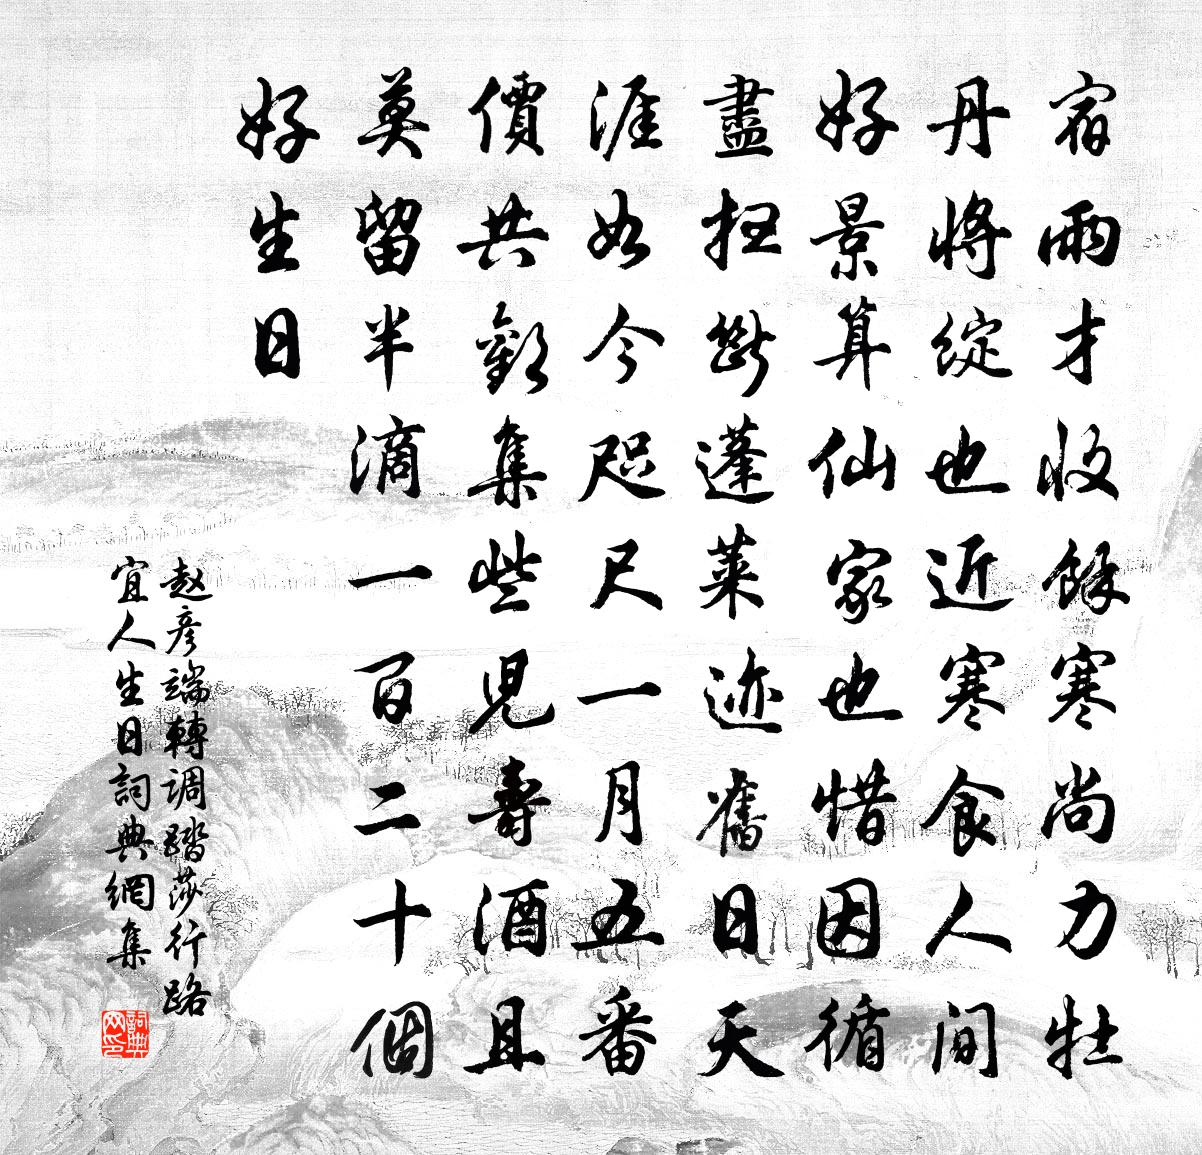 宿雨才收餘寒尚力牡
丹將綻也近寒食人間
好景算仙家也惜因循
盡扫斷蓬萊迹舊日天
涯如今咫尺一月五番
價共歡集些兒壽酒且
莫留半滴一百二十個
好生日
赵彥端轉調踏莎行路
宜人生日詞典網集
詞典
网印